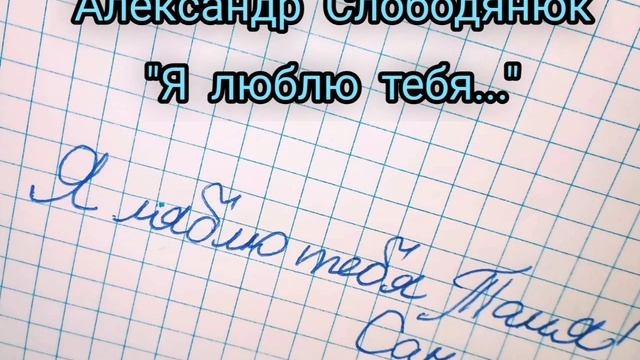 Александр Слободянюк
"Я люблю тебя..."
Я люблю тебя Таня!
Сан